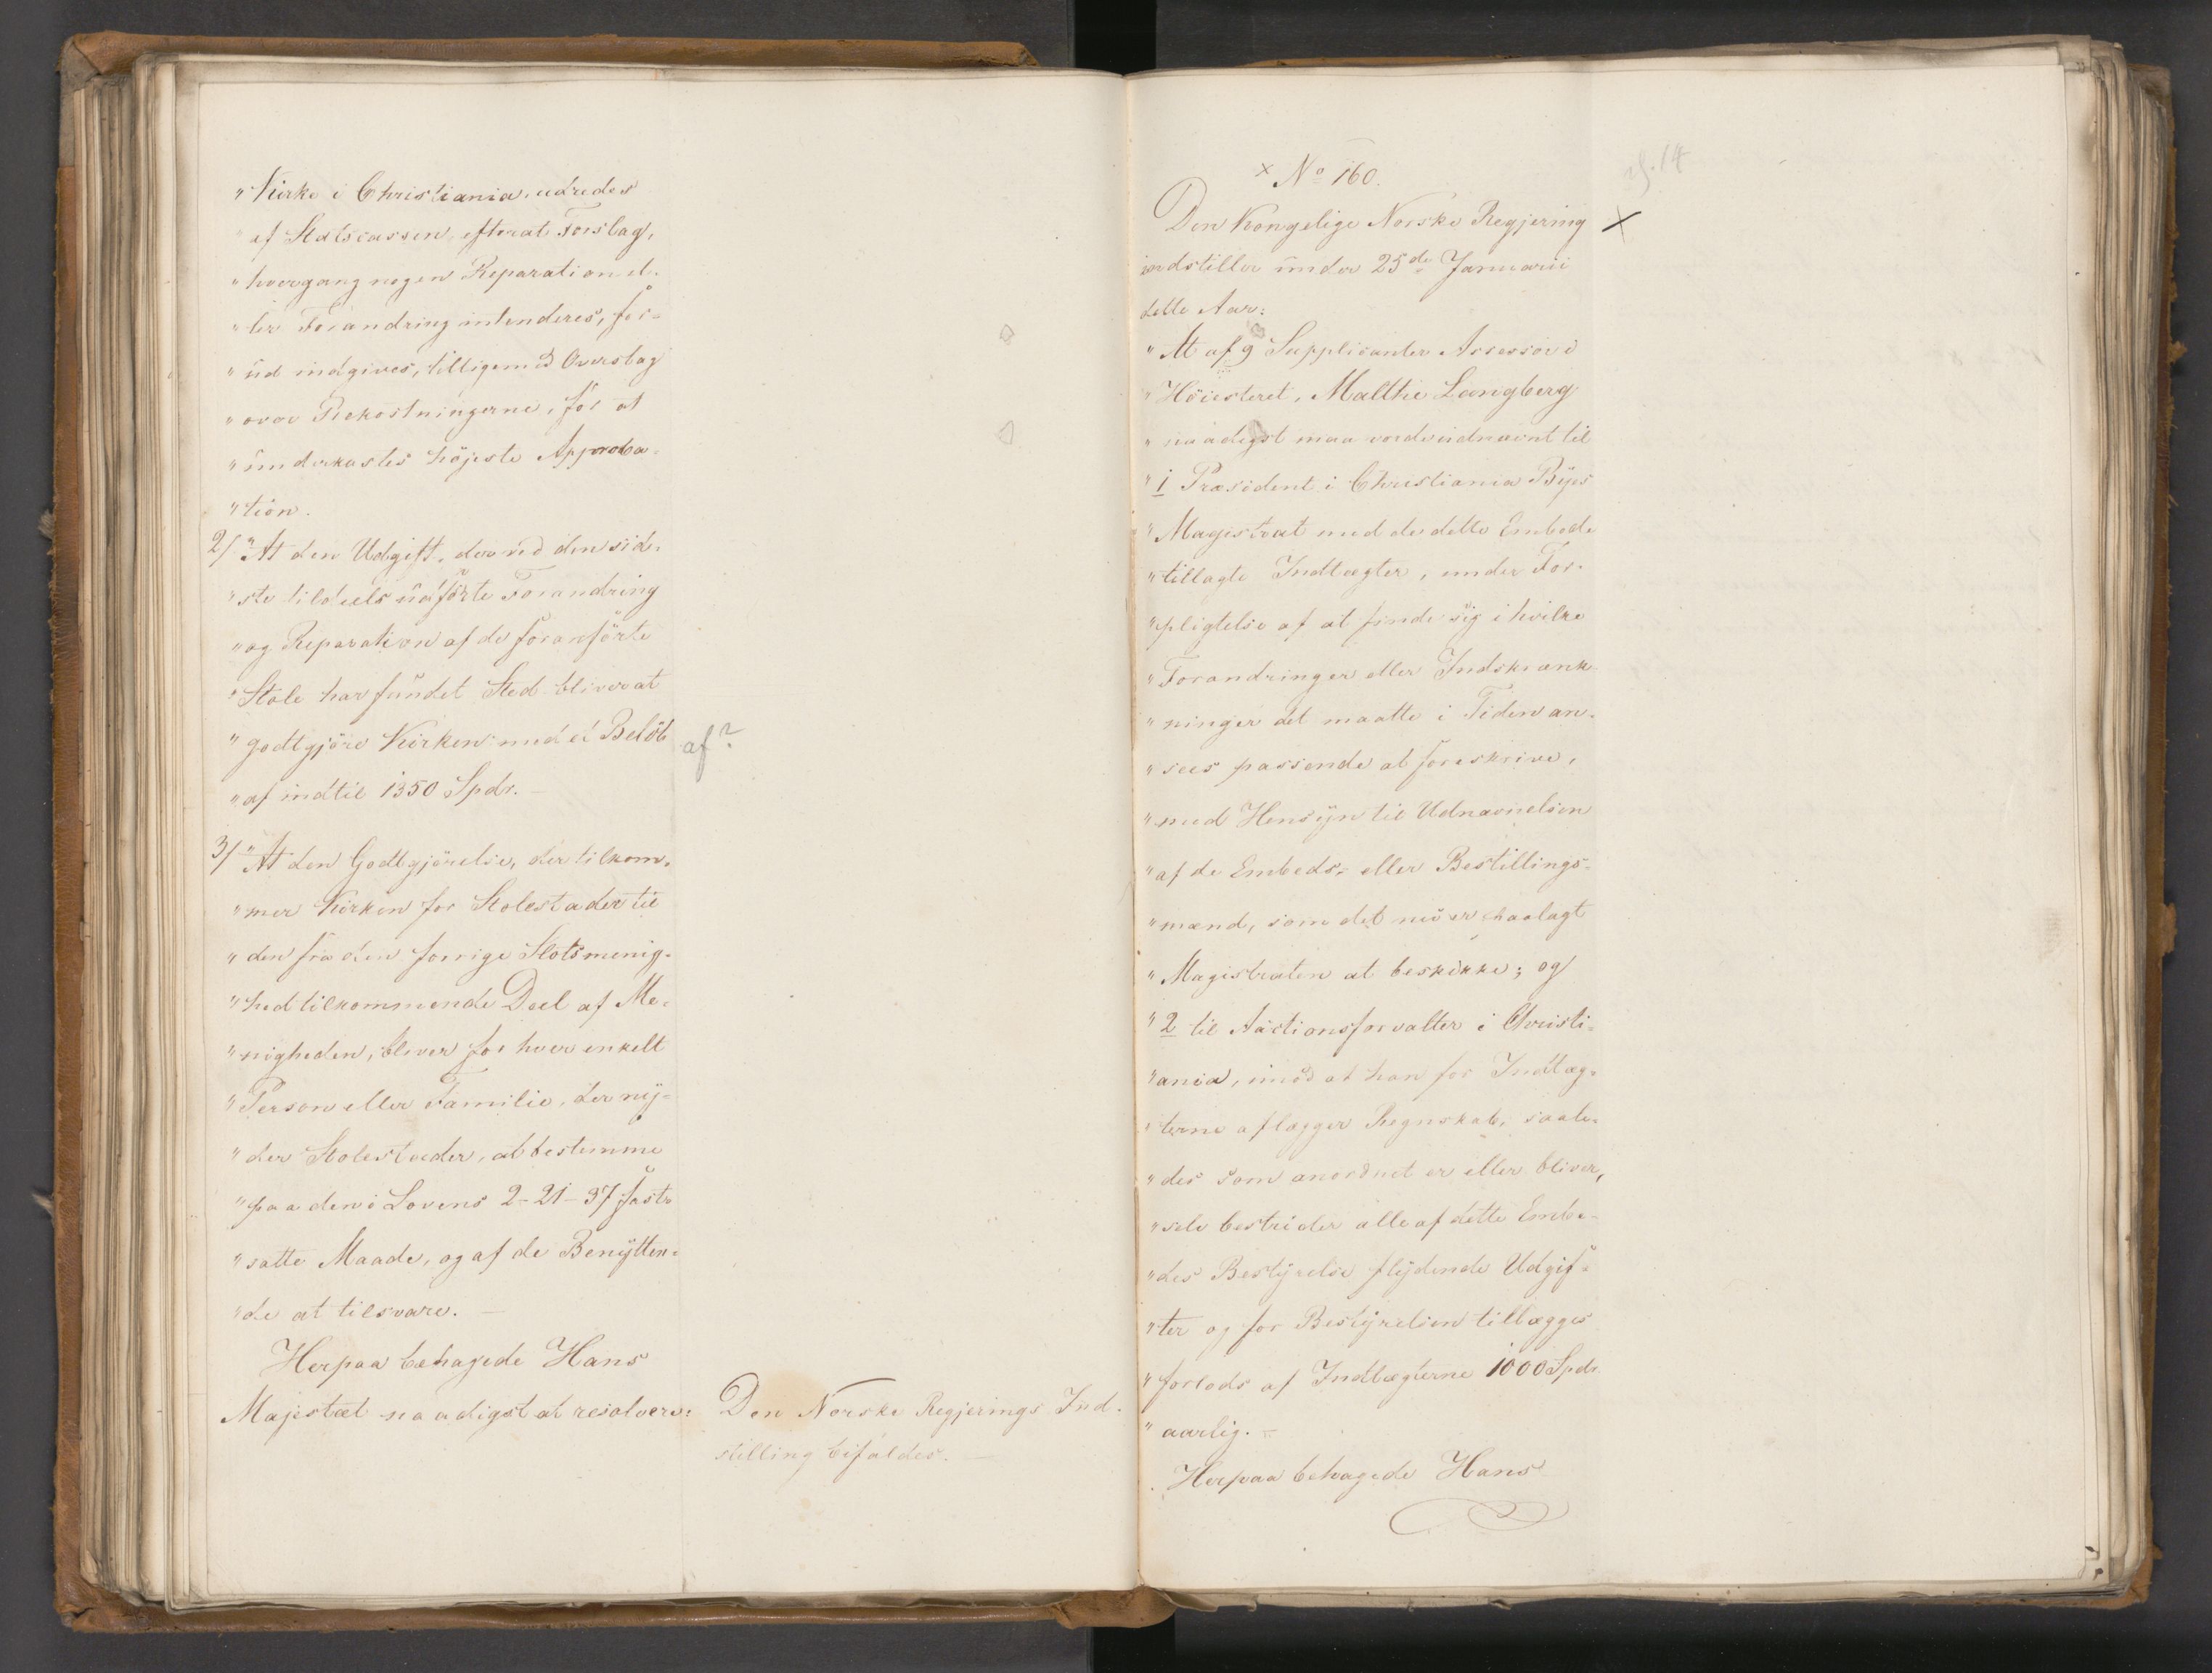 "Kirke i Christiania, udredes
"af Statscassen efterat Forslag,
"hvergang nogen Reparation el-
"ler Forandring intenderes, for-
"ud indgives, tilligemed Overslag
"over Bekostningerne, for at
"underkastes höjeste Approba-
"tion.
2/ "At den Udgift, der ved den sid-
"ste tildeels udförte Forandring
"og Reparation af de foranförte
"Stole har fundet Sted bliver at
"godtgjöre Kirken med et Belöb
af?
"af indtil 1350 Spdr. —
3/ "At den Godtgjörelse, der tilkom-
"mer Kirken for Stolestader til
"den fra den forrige Slotsmenig-
"hed tilkommende Deel af Me-
"nigheden, bliver for hver enkelt
"Person eller Familie, der ny-
"der Stolestader, at bestemme
"paa den i Lovens 2-21-37 fast-
"satte Maade, og af de Benytten-
"de at tilsvare. —
Herpaa behagede Hans
Majestæt naadigst at resolvere:
Den Norske Regjerings Ind-
stilling bifaldes. —
x No 160.
Den Kongelige Norske Regjering x
indstiller under 25de Januarii
dette Aar:
"At af 9 Supplicanter Assessor i
"Höiesteret, Malthe Langberg
"naadigst maa vorde udnævnt til
"1 Præsident i Christiania Byes
"Magistrat med de dette Embede
"tillagte Indtægter, under For-
"pligtelse af at finde sig i hvilke
"Forandringer eller Indskrænk-
"ninger det maatte i Tiden an-
"sees passende at foreskrive,
"med Hensyn til Udnævnelsen
"af de Embeds- eller Bestillings-
"mænd, som det nu er paalagt
"Magistraten at beskikke; og
"2 til Auctionsforvalter i Christi-
"ania, imod at han for Indtæg-
"terne aflægger Regnskab, saale-
"des som anordnet er eller bliver,
"selv bestrider alle af dette Embe-
"des Bestyrelse flydende Udgif-
"ter og for Bestyrelsen tillægges
"forlods af Indtægterne 1000 Spdr.
"aarlig. —
Herpaa behagede Hans